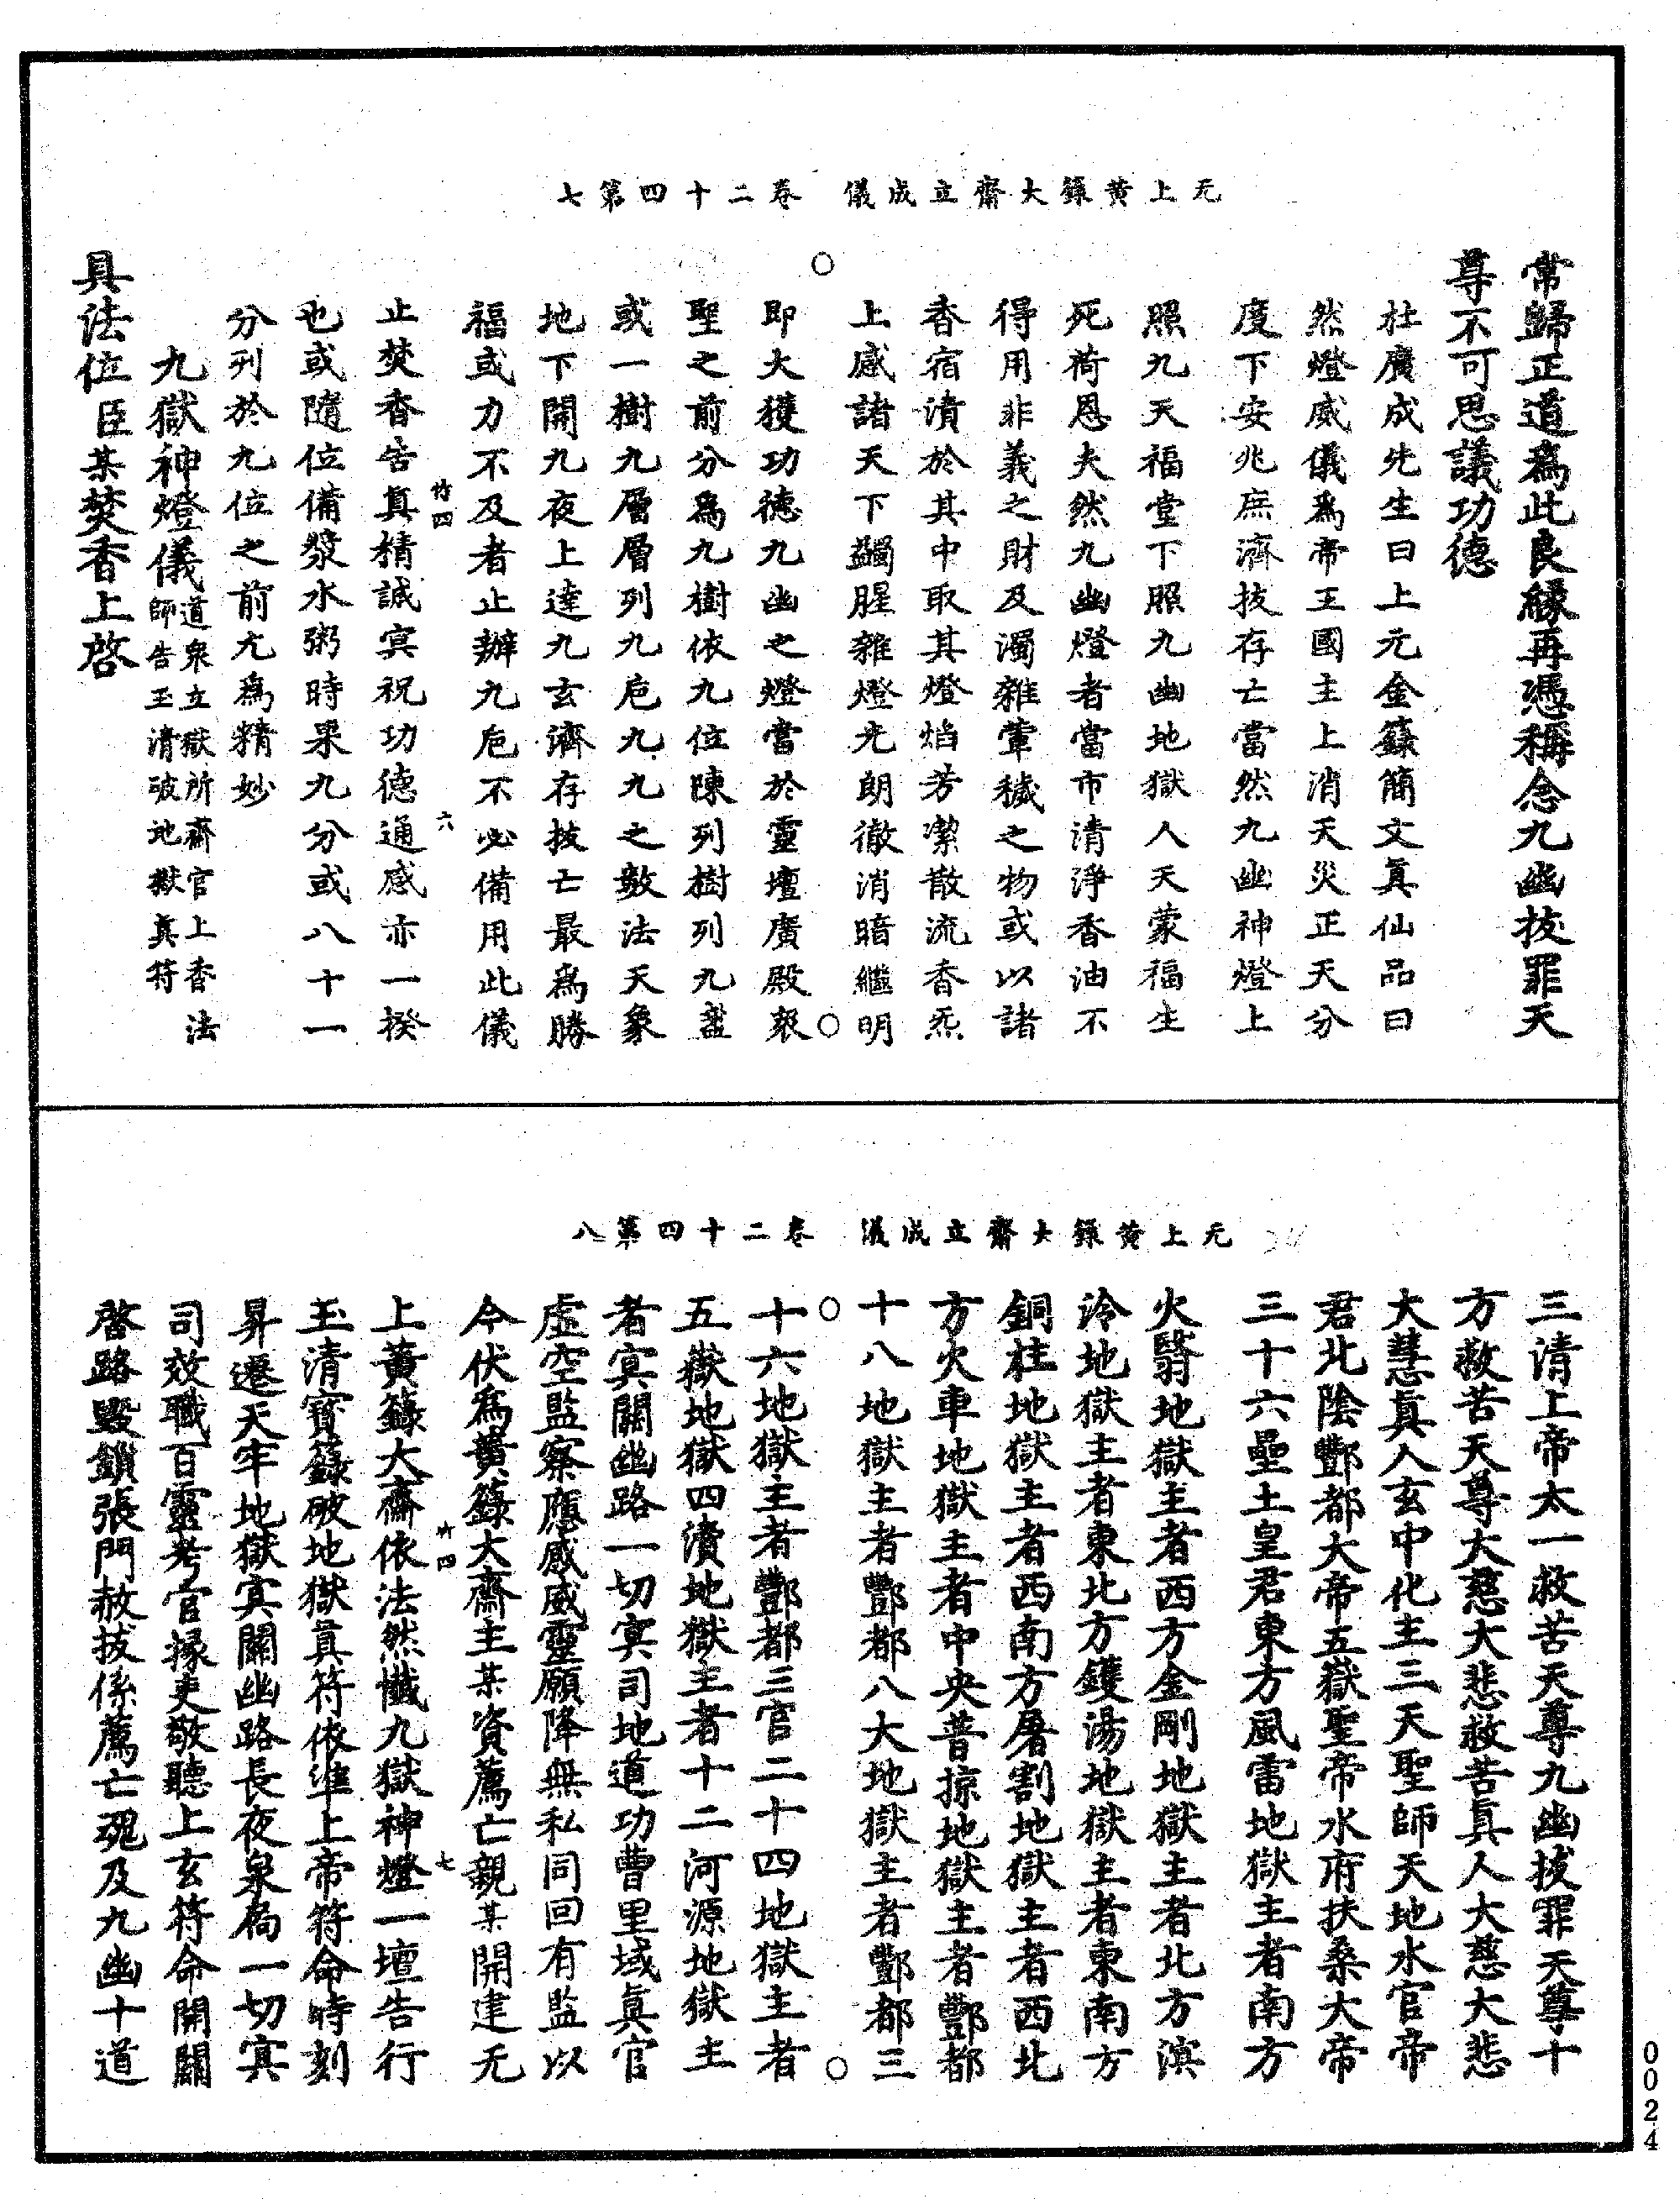 无上黃籙大齋立成儀 卷二十四第七
常歸正道為此良緣再憑稱念九幽拔罪天
尊不可思議功德
杜廣成先生曰上元金籙簡文真仙品曰
然燈威儀為帝王國主上消天災正天分
度下安兆庶濟拔存亡當然九幽神燈上
照九天福堂下照九幽地獄人天蒙福生
死荷恩夫然九幽燈者當市清淨香油不
得用非義之財及濁雜葷穢之物或以諸
香宿漬於其中取其燈焰芳潔散流香炁
上感諸天下蠲腥雜燈光朗徹消暗繼明
即大獲功德九幽之燈當於靈壇廣殿衆
聖之前分為九樹依九位陳列樹列九盞
或一樹九層層列九巵九九之數法天象
地下開九夜上達九玄濟存拔亡最為勝
福或力不及者止辦九巵不必備用此儀
竹四 六
止焚香告真精誠冥祝功德通感亦一揆
也或隨位備漿水粥時果九分或八十一
分列於九位之前尤為精妙
九獄神燈儀道衆立獄所齋官上香法
師告玉清破地獄真符
具法位臣某焚香上啓
无上黃籙大齋立成儀 卷二十四第八
三清上帝太一救苦天尊九幽拔罪天尊十
方救苦天尊大慈大悲救苦真人大慈大悲
大慧真人玄中化主三天聖師天地水官帝
君北陰酆都大帝五嶽聖帝水府扶桑大帝
三十六壘土皇君東方風雷地獄主者南方
火翳地獄主者西方金剛地獄主者北方溟
泠地獄主者東北方鑊湯地獄主者東南方
銅柱地獄主者西南方屠割地獄主者西北
方火車地獄主者中央普掠地獄主者酆都
十八地獄主者酆都八大地獄主者酆都三
十六地獄主者酆都三官二十四地獄主者
五嶽地獄四瀆地獄主者十二河源地獄主
者冥關幽路一切冥司地道功曹里域真官
虛空監察應感威靈願降無私同回有監以
今伏為黃籙大齋主某資薦亡親某開建无
竹四 七
上黃籙大齋依法然懺九獄神燈一壇告行
玉清寶籙破地獄真符依準上帝符命時刻
昇遷天牢地獄冥關幽路長夜泉扃一切冥
司效職百靈考官掾吏敬聽上玄符命開關
啓路毀鎖張門赦拔係薦亡魂及九幽十道
0024